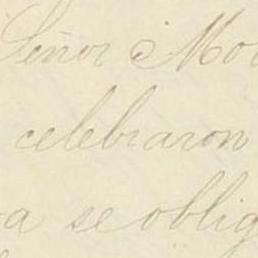 Señor Mo
celebraron
a se oblig